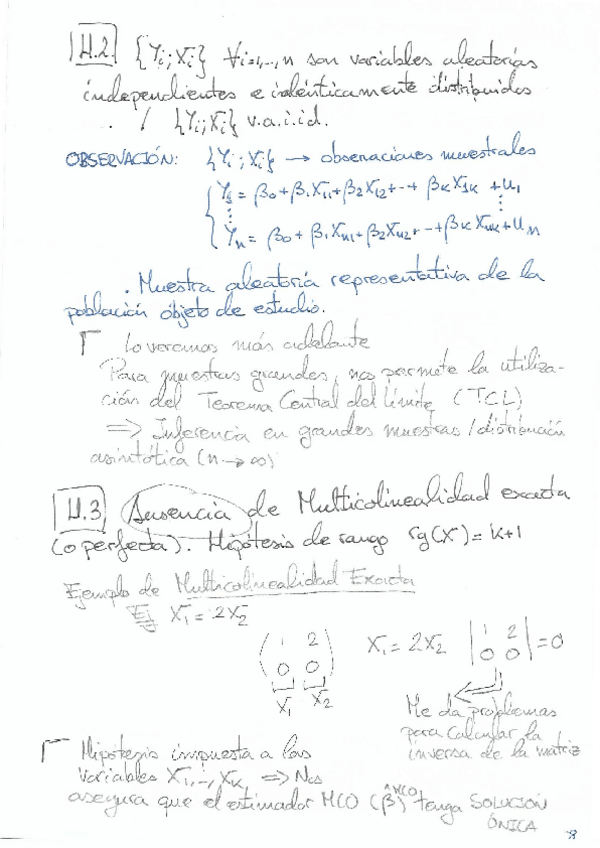 H.2. {Yi; Xi} ∀i=1,...,n son variables aleatorias
independientes e idénticamente distribuidas
. / {Yi; Xi} v.a.i.i.d.
OBSERVACIÓN: {Yi; Xi} → observaciones muestrales
Y1 = β0 + β1X11 + β2X12 + ... + βKX1K + u1
⋮ ⋮
Yn = β0 + β1Xn1 + β2Xn2 + ... + βKXnK + un
. Muestra aleatoria representativa de la
población objeto de estudio.
Lo veremos más adelante
Para muestras grandes, nos permite la utiliza-
ción del Teorema Central del Límite (TCL)
⇒ Inferencia en grandes muestras / distribución
asintótica (n→∞)
H.3 Ausencia de Multicolinealidad exacta
(o perfecta). Hipótesis de rango rg(X) = K+1
Ejemplo de Multicolinealidad Exacta
Ej X1 = 2X2
( 1 2 ) X1 = 2X2 | 1 2 | = 0
( 0 0 ) | 0 0 |
X1 X2
Me da problemas
para calcular la
inversa de la matriz
Hipótesis impuesta a las
variables X1, ..., XK ⇒ Nos
asegura que el estimador MCO (β̂ MCO) tenga SOLUCIÓN
ÚNICA
8